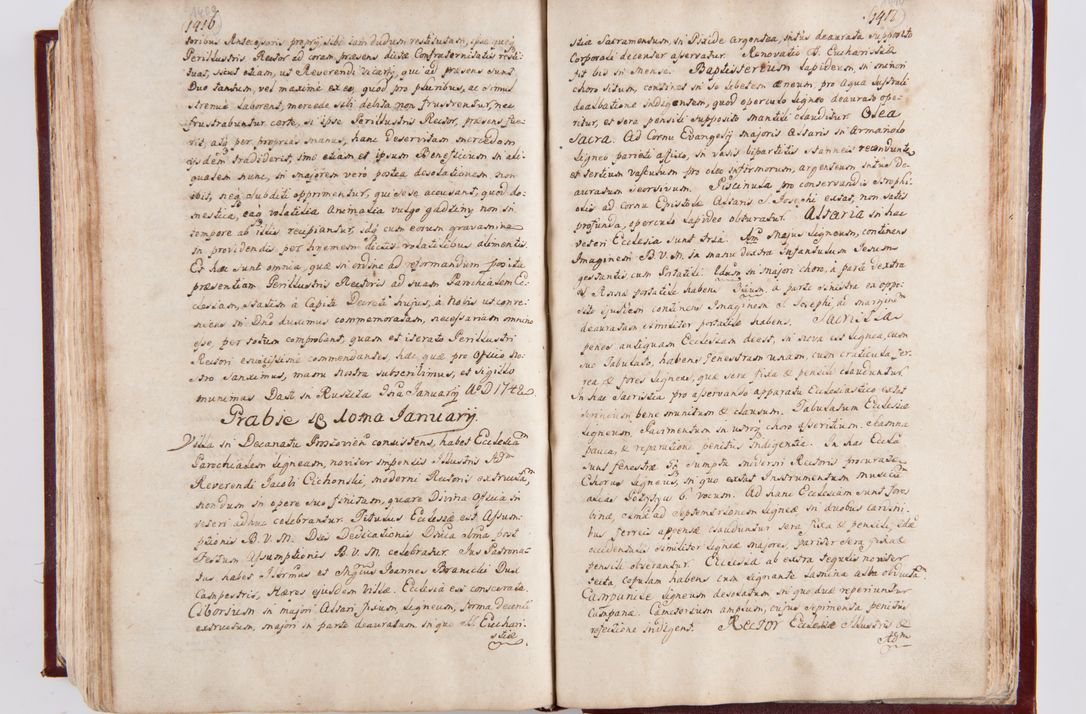 1416
toribus Antecessoris proprij sibi iam dudum restitutum, ipse quoq
Perillustris Rector ad coram præsens dictæ Confraternitatis resti-
tuat, sicut etiam, ut Reverendi Vicarij, qui ad præsens sunt
Duo tantum, vel maxime ex eo, quod pro pluribus, ac simul
strenue laborent, mercede sibi debita non frustrentur, nec
frustrabuntur certe, si ipse Perillustris Rector, præsens fue-
rit, atq per proprias manus, hanc deservitam mercedem
iisdem tradiderit, imo etiam et ipsum Beneficium in ali-
qualem nunc, in majorem vero postea desolationem non
ibit, neq subditi opprimentur, qui sese accusant, quod do-
mestica, eaq volatilia Animalia vulgo gadziny, non in
tempore ab illis recipiantur, idq cum eorum gravamine
in providendis per hyemem dictis volatilibus alimentis.
Et hæc sunt omnia, quæ in ordine ad reformandum posita
præsentiam Perillustris Rectoris ad suam Parochialem Ec-
clesiam, statim à Capite Decreti hujus, à Nobis ut conve-
niens in Dno duximus commemoratam, necessariam omnino
esse, per totum comprobant, quam et iterato Perillustri
Rectori enixissime commendantes, hæc, quæ pro Officio No-
stro sanximus, manu Nostra subscribimus, et Sigillo
munimus Datt in Ruscita Ima January A D 1748.
Grabie 10ma January
Villa in Decanatu Proszovien consistens, habet Ecclesiam
Parochialem ligneam, noviter impensis Illustris Adm
Reverendi Jacobi Cichonski, moderni Rectoris extructam,
nondum in opere suo finitam, quare Divina Officia in
veteri adhuc celebrantur. Titulus Ecclesiæ est Assum-
ptionis B. V. M. Dies Dedicationis Dnica 1ma post
Festum Assumptionis B. V. M celebratur. Jus Patrona-
tus habet Illrmus et Mgficus Joannes Branicki Dux
Campestris, Hæres ejusdem Villæ. Ecclesia est consecrata.
Ciborium in majori Altari, ipsum ligneum, forma decenti
extructum, majori in parte deauratum in quo SS. Euchari-
stiæ
1417
stiæ Sacramentum, in Pixide argentea, intus deaurata supposito
Corporali decenter asservatur. Renovatio SS. Eucharistiæ
fit bis in Mense. Baptisterium lapideum, in minori
choro situm, continet in se lebetem æneum pro aqua lustrali
dealbatione indigentem, quod operculo ligneo deaurato ope-
ritur, et sera pensili supposito mantili clauditur. Olea
Sacra. Ad Cornu Evangelij majoris Altaris in Armariolo
ligneo parieti affixo, in vasis bipartitis stanneis recondunt
et tertium vasculum pro oleo infirmorum, argenteum intus de-
auratum seorsivum. Piscinula pro conservandis strophi-
olis ad Cornu Epistolæ Altaris S. Josephi extat, non satis
profunda, operculo lapideo obturatur. Altaria in hac
veteri Ecclesia sunt tria. 1mum Majus ligneum, continens
Imaginem B. V. M. in manu dextra Infantulum Jesum
gestantis, cum Portatili. 2dum in majori choro, à parte dextra
S. Annæ portatile habens. 3tium, à parte sinistra ex oppo-
sito ejusdem continens Imaginem S. Josephi in margine
deauratam similiter portatile habens. Sacristia
penes antiquam Ecclesiam deest, in nova est lignea, cum
suo Tabulato, habens fenestram unam, cum craticula fer-
rea & fores ligneas, quæ sera fixa & pensili clauduntur.
In hac Sacristia pro asservando apparatu Ecclesiastico extat
bene munitum & clausum. Tabulatum Ecclesiæ
ligneum, Pavimentum in utroq choro asseritium. Scamna
pauca, & reparatione penitus indigentia. In hac Eccla
sunt fenestræ sumptu moderni Rectoris procuratæ
Chorus ligneus, in quo extat Instrumentum musicum
alias Pozytyw 6 vocum. Ad hanc Ecclesiam sunt fores
binæ, 1ma ad Septemtrionem ligneæ in duobus cardini-
bus ferreis appensæ clauduntur sera fixa & pensili, 2dæ
occidentales similiter ligneæ majores, pariter sera
pensili obserantur. Ecclesia ab extra tegulis noviter
tecta copulam habens cum signante lamina alba obductam
Campanile ligneum desolatum in quo duæ reperiuntur
Campanæ. Cæmeterium amplum, cujus sepimenta penitus
refectione indigent. Rector Ecclesiæ Illustris &
Adm